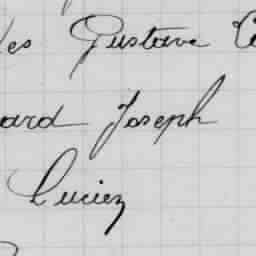 les Gustave
ard Joseph
Lucien